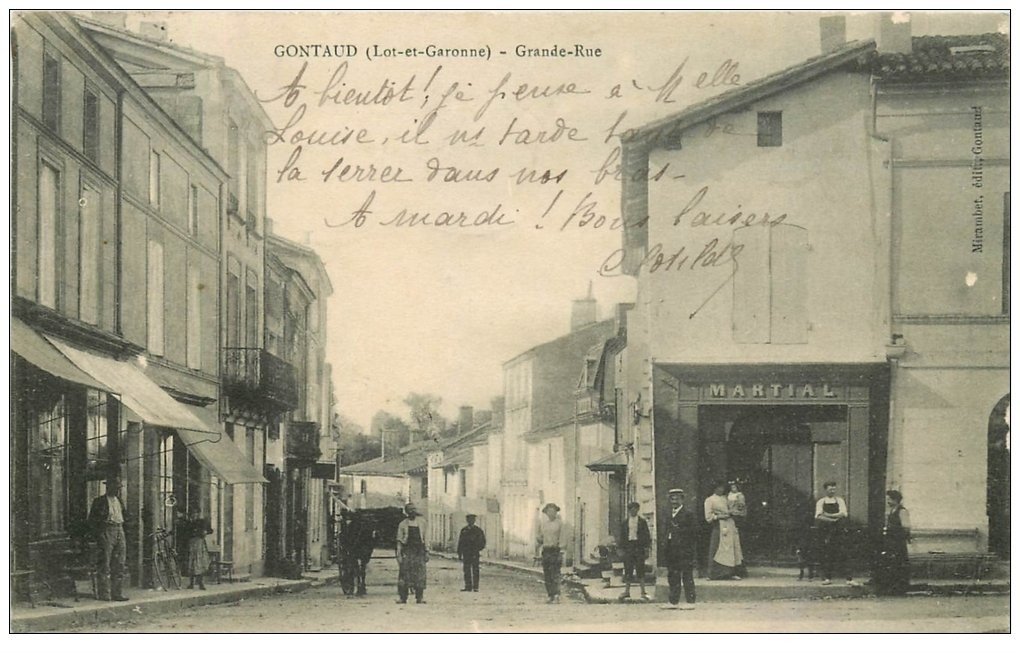 GONTAUD (Lot-et-Garonne) - Grande-Rue
A bientôt! je pense à Melle
Louise, il ns tarde tant de
la serrer dans nos bras-
A mardi! Bons baisers
Clotilde
Mirambet, édit., Gontaud
MARTIAL